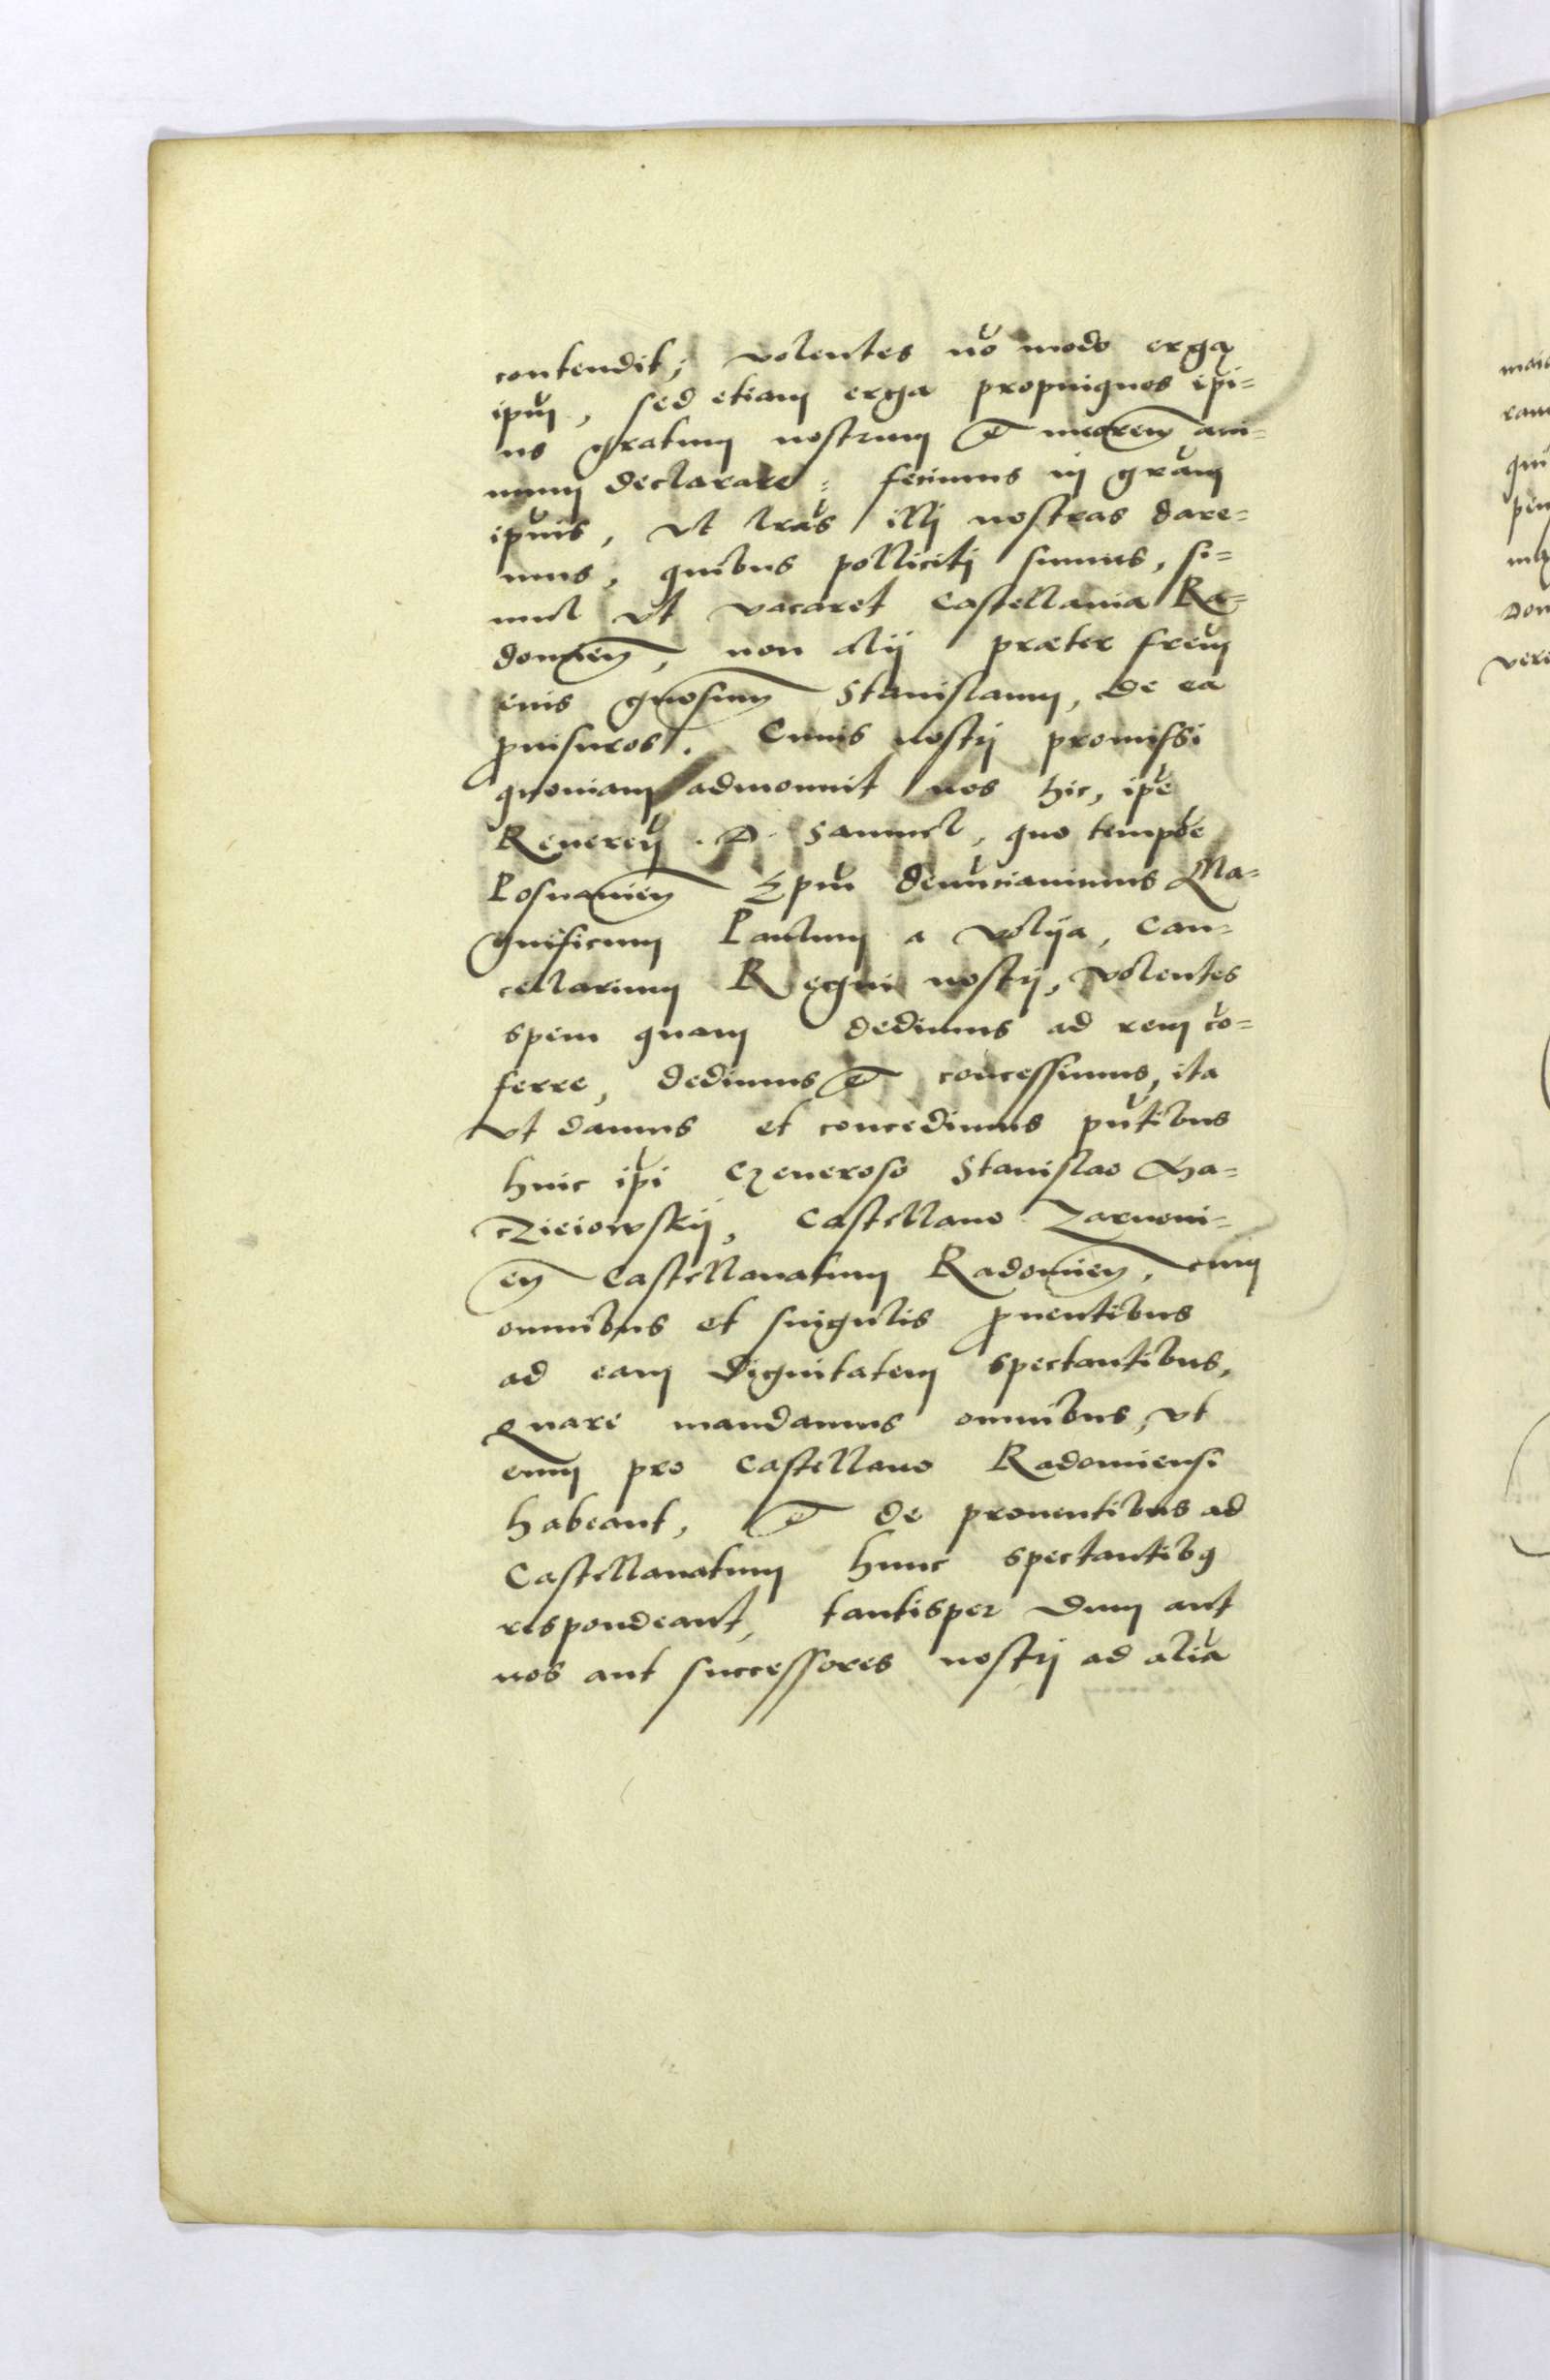 contendit; volentes nō modo erga
ipm̄, sed etiam erga propinquos ipi-
us gratum nostrum et mēorem ani-
mum declarare: fecimus in grām
ipius, vt lrās illj nostras dare-
mus, quibus pollicitj sumus, si-
mul vt vacaret Castellania Ra-
domien̄, non alij præter frēm
eius gn̄osum Stanislaum, de ea
ꝓuisuros. Cuius nostrj promissi
quoniam admonuit nos hic, ipē
Reuerēn. D. Samuel, quo tempōe
Posnanien̄ Ep̄m denūciauimus Ma-
gnificum Paulum a Volija, Can-
cellarium Regni nostrj, volentes
spem quam dedimus ad rem cō-
ferre, dedimus et concessimus, ita
vt damus et concedimus pn̄tibus
huic ip̄i Generoso Stanislao Ma-
czieiowskij, Castellano Zarnoui-
en̄ Castellanatum Radomien̄, cum
omnibus et singulis ꝓuentibus
ad eam dignitatem spectantibus,
Quare mandamus omnibus, vt
eum pro Castellano Radomiensi
habeant, et de prouentibus ad
Castellanatum hunc spectantibꝫ
respondeant, tantisper dum aut
nos aut successores nostrj ad aliā